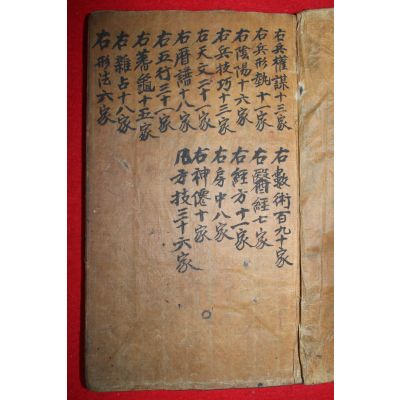 右兵權謀十三家
右兵形埶十一家
右陰陽十六家
右兵技巧十三家
右天文二十一家
右曆譜十八家
右五行三十一家
右蓍龜十五家
右雜占十八家
右形法六家
右數術百九十家
右醫經七家
右經方十一家
右房中八家
右神僊十家
凡方技三十六家